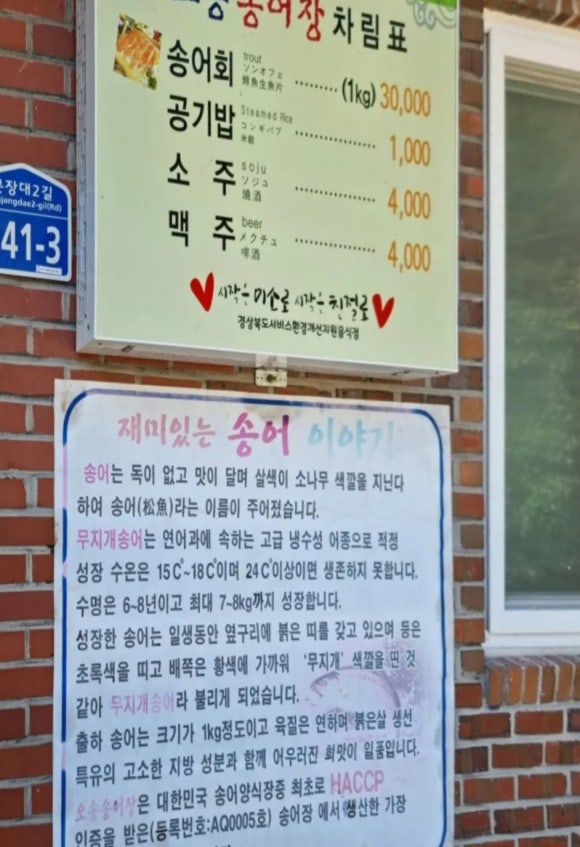 송어장 차림표
송어회 trout ソンオフェ 鱒魚生魚片 ········ (1kg) 30,000
공기밥 Steamed Rice コンギパプ 米飯 ················ 1,000
소 주 soju ソジュ 燒酒 ················ 4,000
맥 주 beer メクチュ 啤酒 ················ 4,000
시작은 미소로 시작은 친절로
경상북도서비스환경개선지원음식점
문장대2길
jangdae2-gil(Rd)
41-3
재미있는 송어 이야기
송어는 독이 없고 맛이 달며 살색이 소나무 색깔을 지닌다
하여 송어(松魚)라는 이름이 주어졌습니다.
무지개송어는 연어과에 속하는 고급 냉수성 어종으로 적정
성장 수온은 15C°~18C°이며 24C°이상이면 생존하지 못합니다.
수명은 6~8년이고 최대 7~8kg까지 성장합니다.
성장한 송어는 일생동안 옆구리에 붉은 띠를 갖고 있으며 등은
초록색을 띠고 배쪽은 황색에 가까워 '무지개' 색깔을 띤 것
같아 무지개송어라 불리게 되었습니다.
출하 송어는 크기가 1kg정도이고 육질은 연하며 붉은살 생선
특유의 고소한 지방 성분과 함께 어우러진 회맛이 일품입니다.
오송송어장은 대한민국 송어양식장중 최초로 HACCP
인증을 받은(등록번호:AQ0005호) 송어장 에서 생산한 가장